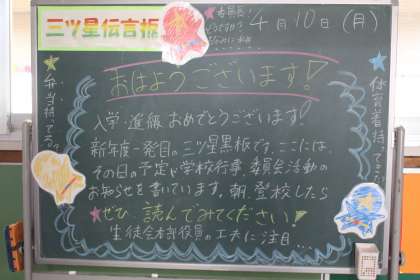 三ツ星伝言板
4月10日(月)
おはようございます!
入学・進級 おめでとうございます!
新年度一発目の三ツ星黒板です。ここには、
その日の予定や学校行事、委員会活動の
お知らせを書いています。朝、登校したら
★ぜひ、読んでみてください!
生徒会本部役員の工夫に注目...
★弁当持ってる?
★体育着持ってきた?